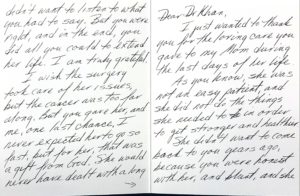 Dear Dr Khan,
I just wanted to thank
you for the loving care you
gave to my Mom during
the last days of her life
As you know, she was
not an easy patient, and
she did not do the things
she needed to in order
to get stronger and healthier
She didn't want to come
back to you years ago,
because you were honest
with her, and blunt, and she
didn't want to listen to what
you had to say. But you were
right, and in the end, you
did all you could to extend
her life. I am truly grateful.
I wish the surgery
took care of her issues,
but the cancer was too far
along. But you gave her, and
me, one last chance. I
never expected her to go so
fast, but for her, that was
a gift from God. She would
never have dealt with a long